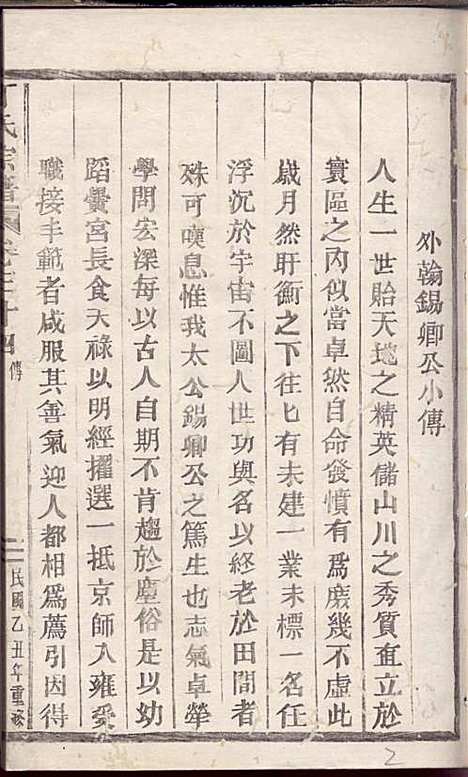 外翰錫卿公小傳
人生一世貽天地之精英儲山川之秀質直立於
寰區之內似當卓然自命發憤有爲庻幾不虛此
歲月然盱衡之下往匕有未建一業未標一名任
浮沉於宇宙不圖人世功與名以終老於田間者
殊可嘆息惟我太公錫卿公之篤生也志氣卓犖
學問宏深每以古人自期不肯趨於塵俗是以幼
蹈黌宮長食天祿以明經擢選一抵京師入雍受
職接丰範者咸服其善氣迎人都相爲薦引因得
丁氏宗譜 卷三十四 傳 二 民國乙丑年重修
2